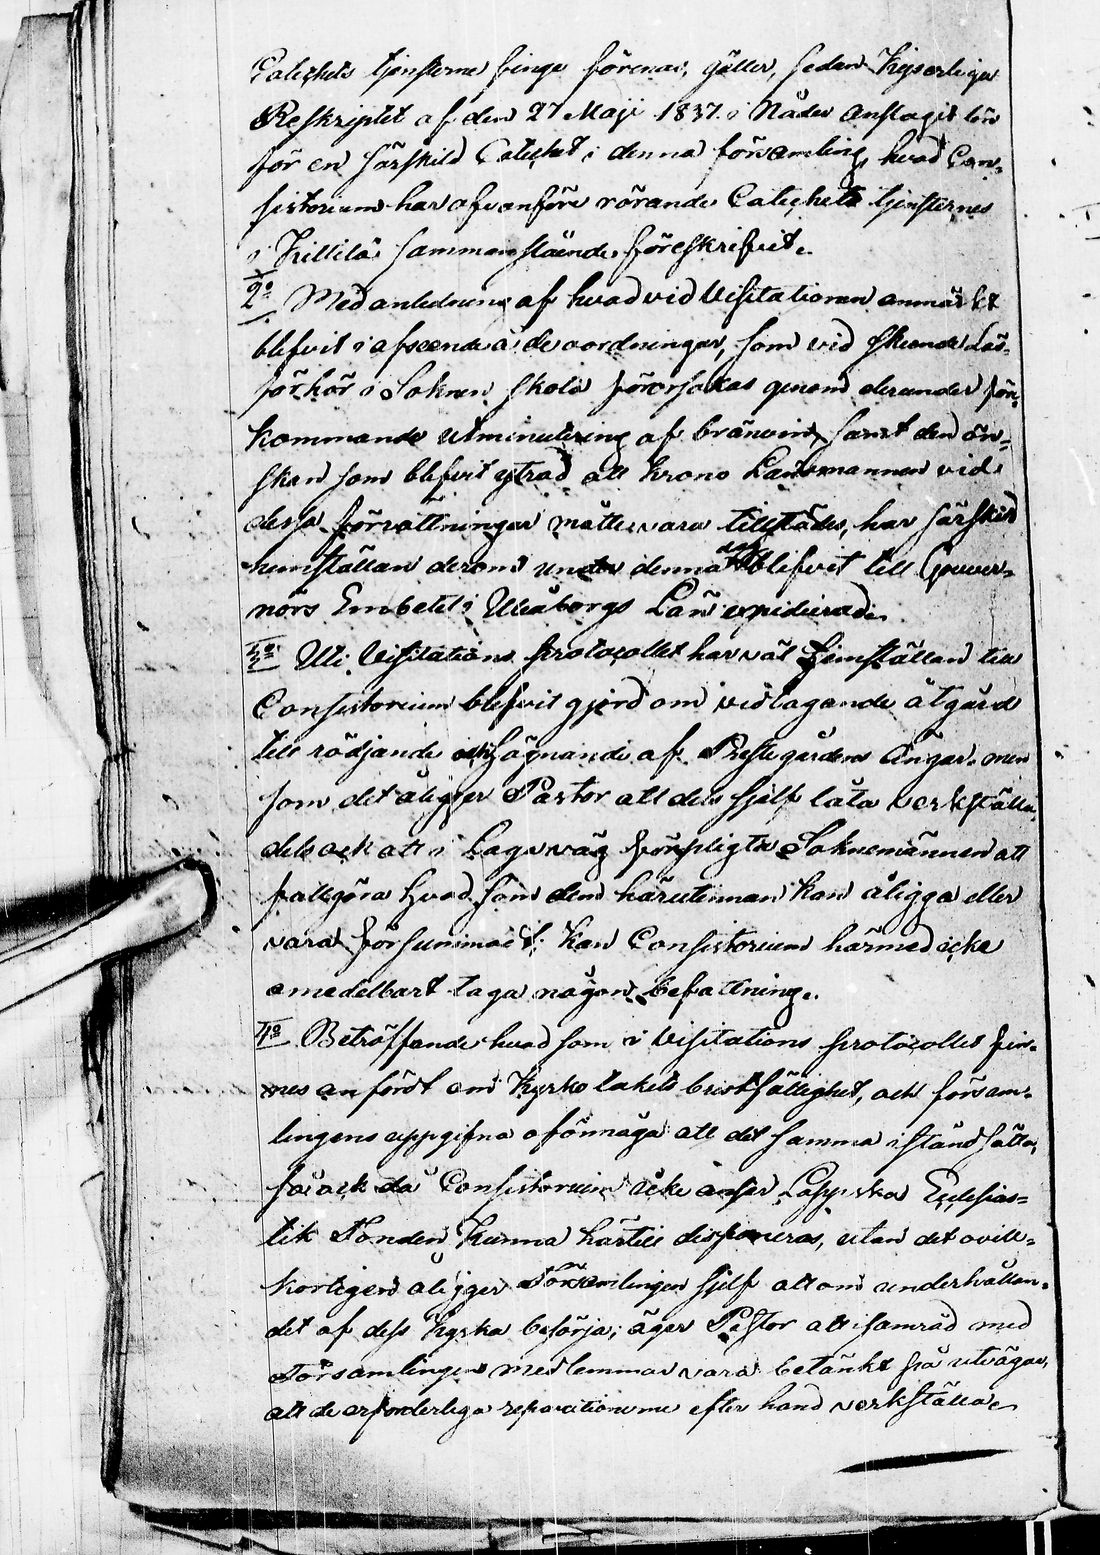 Catechets tjensterne finge förenas, gäller, sedan Kejserliga
Reskriptet af den 27 Maji 1837 i Nåder anslagit lön
för en särskild Catechet i denna församling, hvad Con-
sistorium har ofvanföre rörande Catechets tjensternes
i Killilä sammanslående föreskrifvit.
2o Med anledning af hvad vid Visitationen anmärkt
blifvit i afseende å de oordningar, som vid skeende Läs-
förhör i Soknen skola förorsakas genom derunder före-
kommande utminutering af bränvin, samt den ön-
skan som blifvit ytrad att krono Länsmannen vid
dessa förrättningar måtte vara tillstädes, har särskild
hemställan derom under denna dag blifvit till Gouver-
nörs Embetet i Uleåborgs Län expedierad.
3o Uti Visitations protocollet har väl hemställan till
Consistorium blifvit gjord om vidtagande åtgärd
till rödjande och hägnande af Prestegårdens ängar, men
som det åligger Pastor att dels sjelf låta verkställa,
dels ock att i Laga väg förpligta Soknemännen att
fullgöra hvad som dem härutinnan kan åligga eller
vara försummadt; kan Consistorium härmed icke
omedelbart taga någon befattning.
4o Beträffande hvad som i Visitations protocollet fin-
nes anfördt om Kyrko takets bristfällighet, och försam-
lingens uppgifna oförmåga att det samma i stånd sätta,
så ock då Consistorium icke anser Lappska Ecclesias-
tik Fonden kunna härtill disponeras, utan det ovill-
korligen åligger Församlingen sjelf att om underhållan-
det af dess Kyrka besörja; äger Pastor att i samråd med
Församlingens medlemmar vara betänkt på utvägar,
att de erforderliga reparationerne efter hand verkställa.